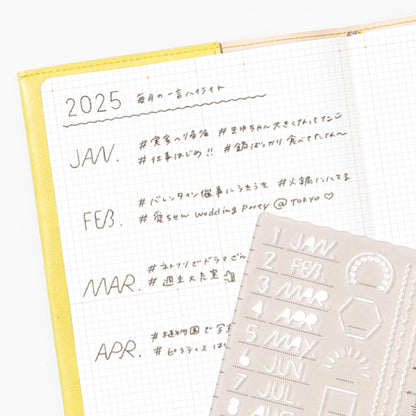 2025 毎月の一言ハイライト
JAN.
#実家へり帰省 #まゆちゃん大きくなってた
#仕事はじめ!! #鍋ばっかり食べてたな〜
FEB.
#バレンタイン催事にうきうき #火鍋にハマる
#愛ちゃん Wedding Party @TOKYO♡
MAR.
#ネトフリでドラマざん
#週末大充実
APR.
#植物園で
#ピラティスは
1 JAN.
2 FEB.
3 MAR.
4 APR.
5 MAY.
6 JUN.
7 JUL.
8 AUG